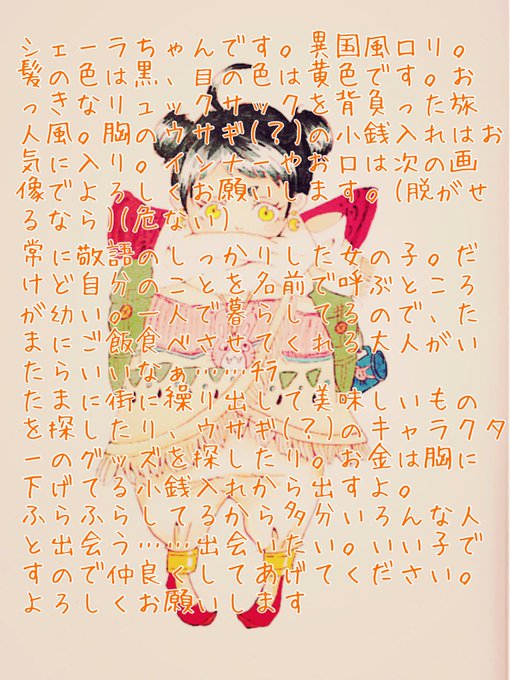 シェーラちゃんです。異国風ロリ。
髪の色は黒、目の色は黄色です。お
っきなリュックサックを背負った旅
人風。胸のウサギ(?)の小銭入れはお
気に入り。インナーやお口は次の画
像でよろしくお願いします。(脱がせ
るなら)(危ない)
常に敬語のしっかりした女の子。だ
けど自分のことを名前で呼ぶところ
が幼い。一人で暮らしてるので、た
まにご飯食べさせてくれる大人がい
たらいいなぁ……チラ
たまに街に繰り出して美味しいもの
を探したり、ウサギ(?)のキャラクタ
ーのグッズを探したり。お金は胸に
下げてる小銭入れから出すよ。
ふらふらしてるから多分いろんな人
と出会う……出会いたい。いい子で
すので仲良くしてあげてください。
よろしくお願いします